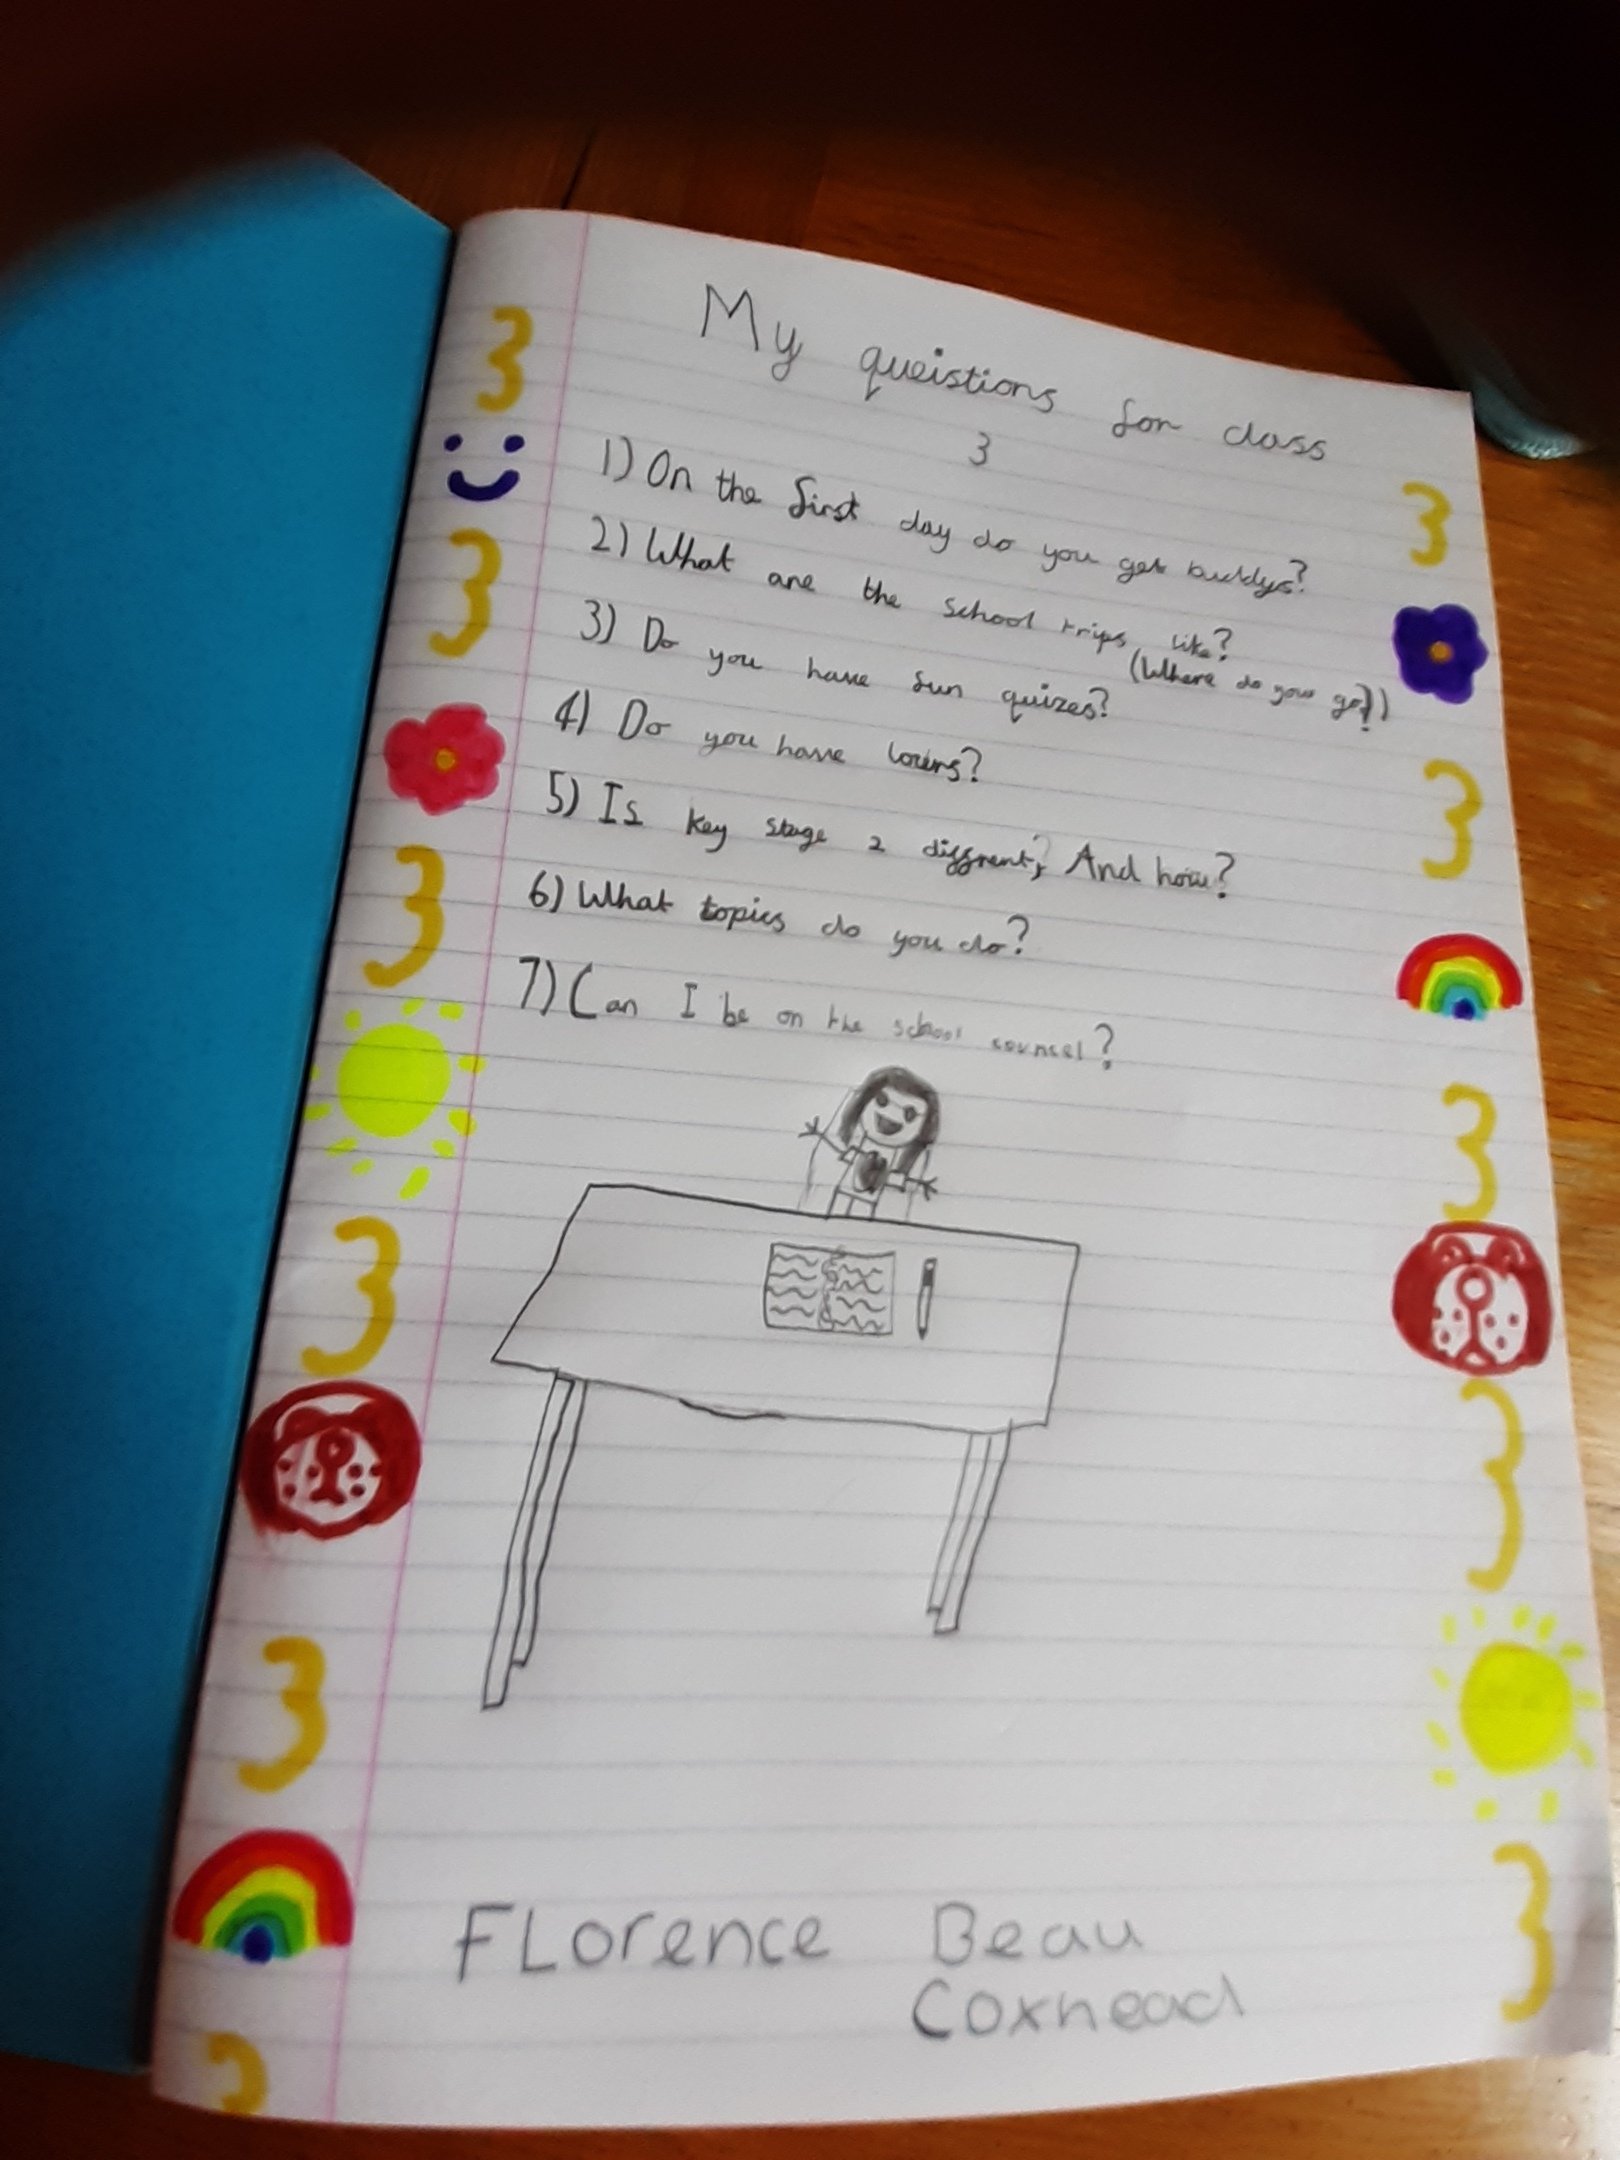 My queistions for class
3
1) On the first day do you get buddys?
2) What are the school trips like?
(Where do you go?)
3) Do you have fun quizes?
4) Do you have
5) Is key stage 2 diffrent? And how?
6) What topics do you do?
7) Can I be on the school councel?
FLorence Beau
Coxhead
3
3
3
3
3
3
3
3
3
3
3